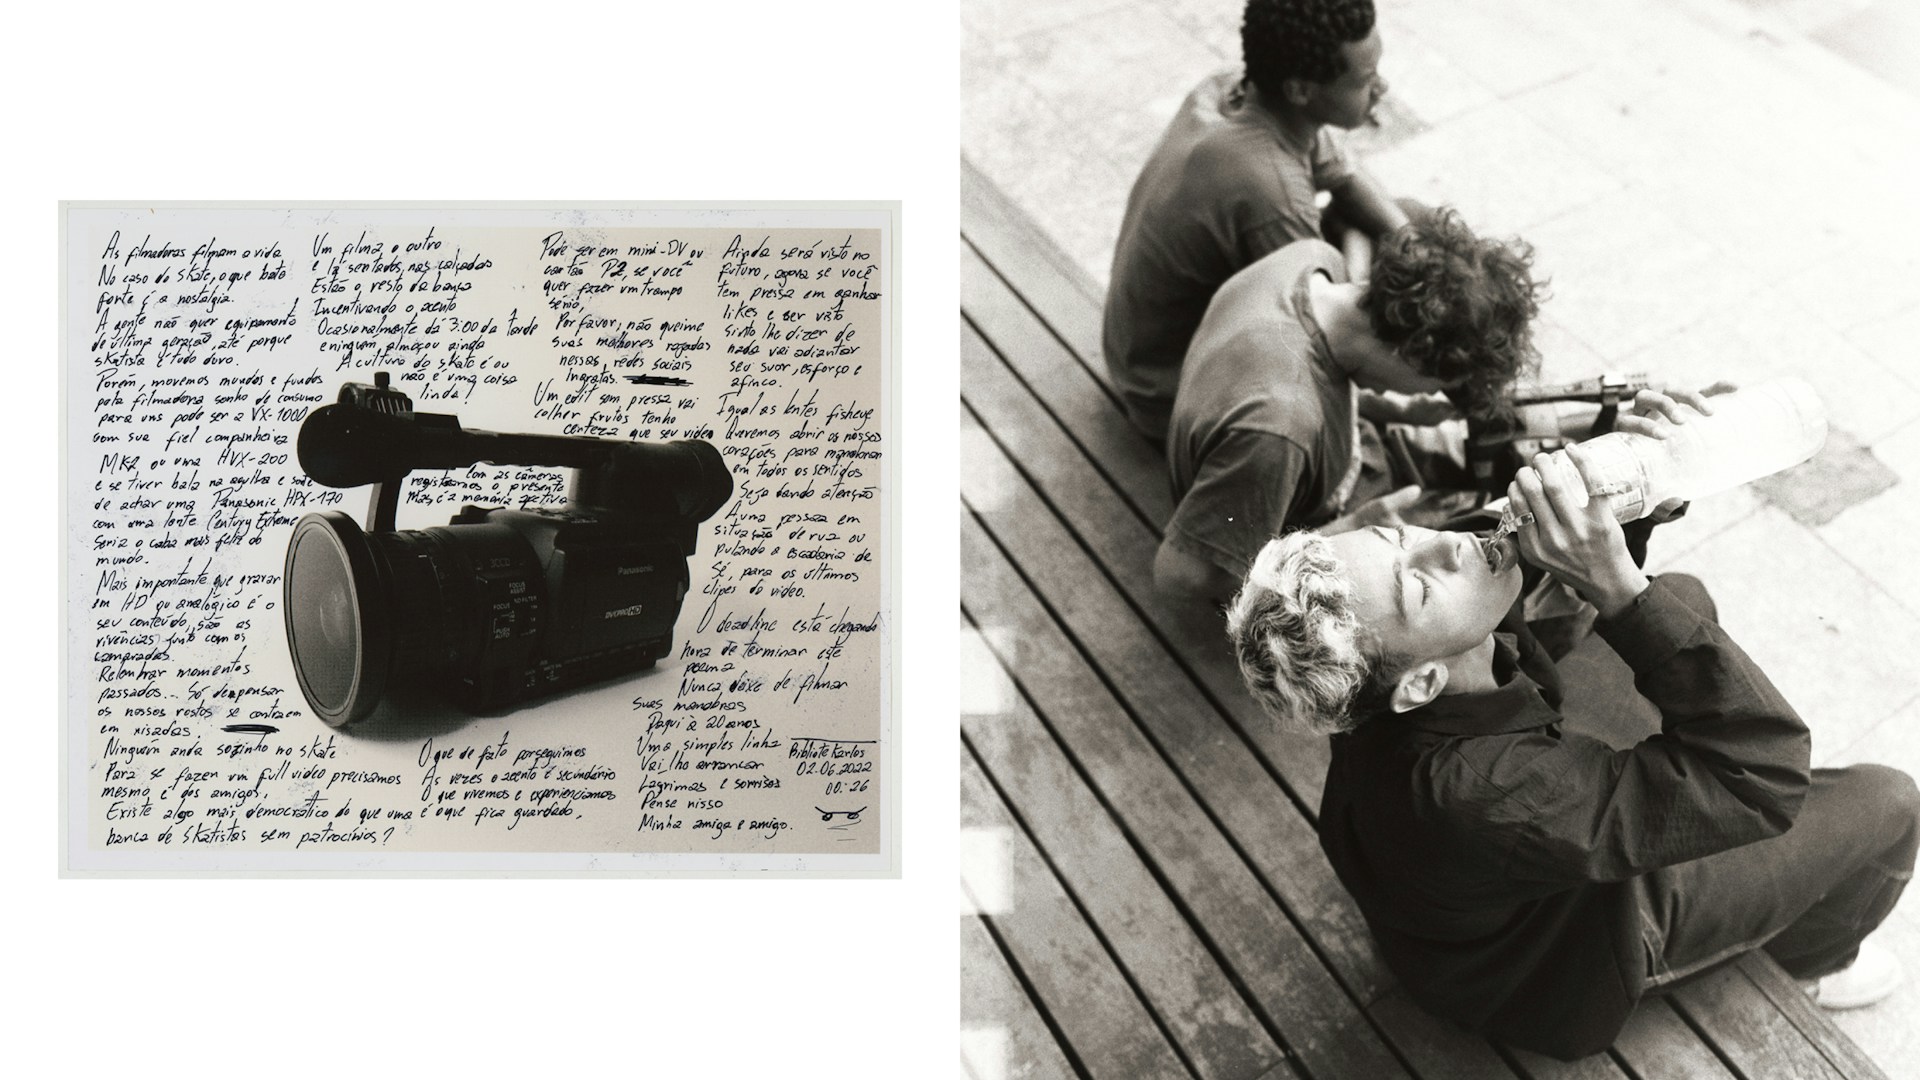 As filmadoras filmam a vida
No caso do skate, o que bate
forte é a nostalgia.
A gente não quer equipamento
de última geração, até porque
skatista é tudo duro.
Porém, movemos mundos e fundos
pela filmadora sonho de consumo
para uns pode ser a VX-1000
com sua fiel companheira
MK2 ou uma HVX-200
e se tiver bala na agulha e sorte
de achar uma Panasonic HPX-170
com uma lente Century Extreme
Seria o caba mais feliz do
mundo.
Mais importante que gravar
em HD ou analógico é o
seu conteúdo, são as
vivências junto com os
camaradas.
Relembrar momentos
passados... Só de pensar
os nossos rostos se contraem
em risadas.
Ninguém anda sozinho no skate
Para se fazer um full video precisamos
mesmo é dos amigos.
Existe algo mais democrático do que uma
banca de skatistas sem patrocínios?
Um filma o outro
e lá sentados, nas calçadas
Estão o resto da banca
Incentivando o acerto
Ocasionalmente dá 3:00 da tarde
e ninguém almoçou ainda
A cultura do skate é ou
não é uma coisa
linda?
Com as câmeras
registramos o presente
Mas é a memória afetiva
O que de fato perseguimos
As vezes o acerto é secundário
O que vivemos e experienciamos
é o que fica guardado.
Pode ser em mini-DV ou
cartão P2, se você
quer fazer um trampo
sério,
Por favor, não queime
suas melhores rajadas
nessas redes sociais
Ingratas.
Um edit sem pressa vai
colher frutos tenho
certeza que seu video
Ainda será visto no
futuro, agora se você
tem pressa em ganhar
likes e ser visto
sinto lhe dizer de
nada vai adiantar
seu suor, esforço e
afinco.
Igual as lentes fisheye
Queremos abrir os nossos
corações para manobrar
em todos os sentidos
Seja dando atenção
A uma pessoa em
situação de rua ou
pulando a escadaria da
Sé, para os últimos
clipes do video.
O deadline está chegando
hora de terminar este
poema
Nunca deixe de filmar
Suas manobras
Daqui à 20 anos
Uma simples linha
Vai lho arrancar
Lagrimas e sorrisos
Pense nisso
Minha amiga e amigo.
Bibliote Karlos
02.06.2022
00:26
Panasonic
DVCPRO HD
FOCUS
ASSIST
FOCUS
ND FILTER
PUSH